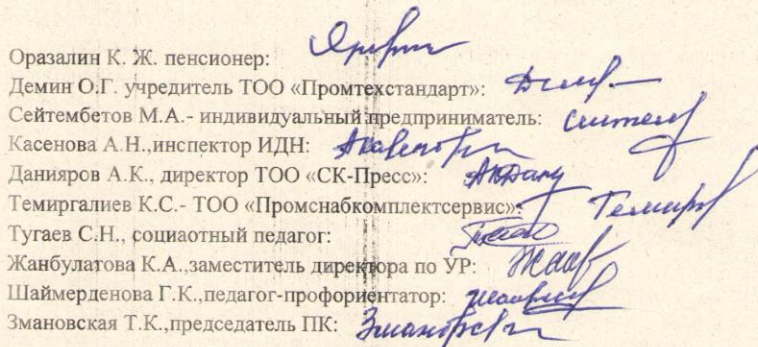 Оразалин К. Ж. пенсионер:
Демин О.Г. учредитель ТОО «Промтехстандарт»:
Сейтембетов М.А.- индивидуальный предприниматель:
Касенова А.Н.,инспектор ИДН:
Данияров А.К., директор ТОО «СК-Пресс»:
Темиргалиев К.С.- ТОО «Промснабкомплектсервис»: Темирг
Тугаев С.Н., социаотный педагог:
Жанбулатова К.А.,заместитель директора по УР:
Шаймерденова Г.К.,педагог-профориентатор:
Змановская Т.К.,председатель ПК: